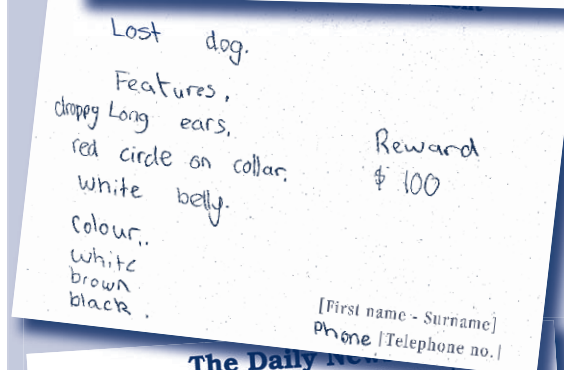 Lost dog.
Features,
droppy Long ears,
red circle on collar.
white belly.
Reward
$ 100
colour..
white
brown
black.
[First name - Surname]
Phone |Telephone no.|
The Daily